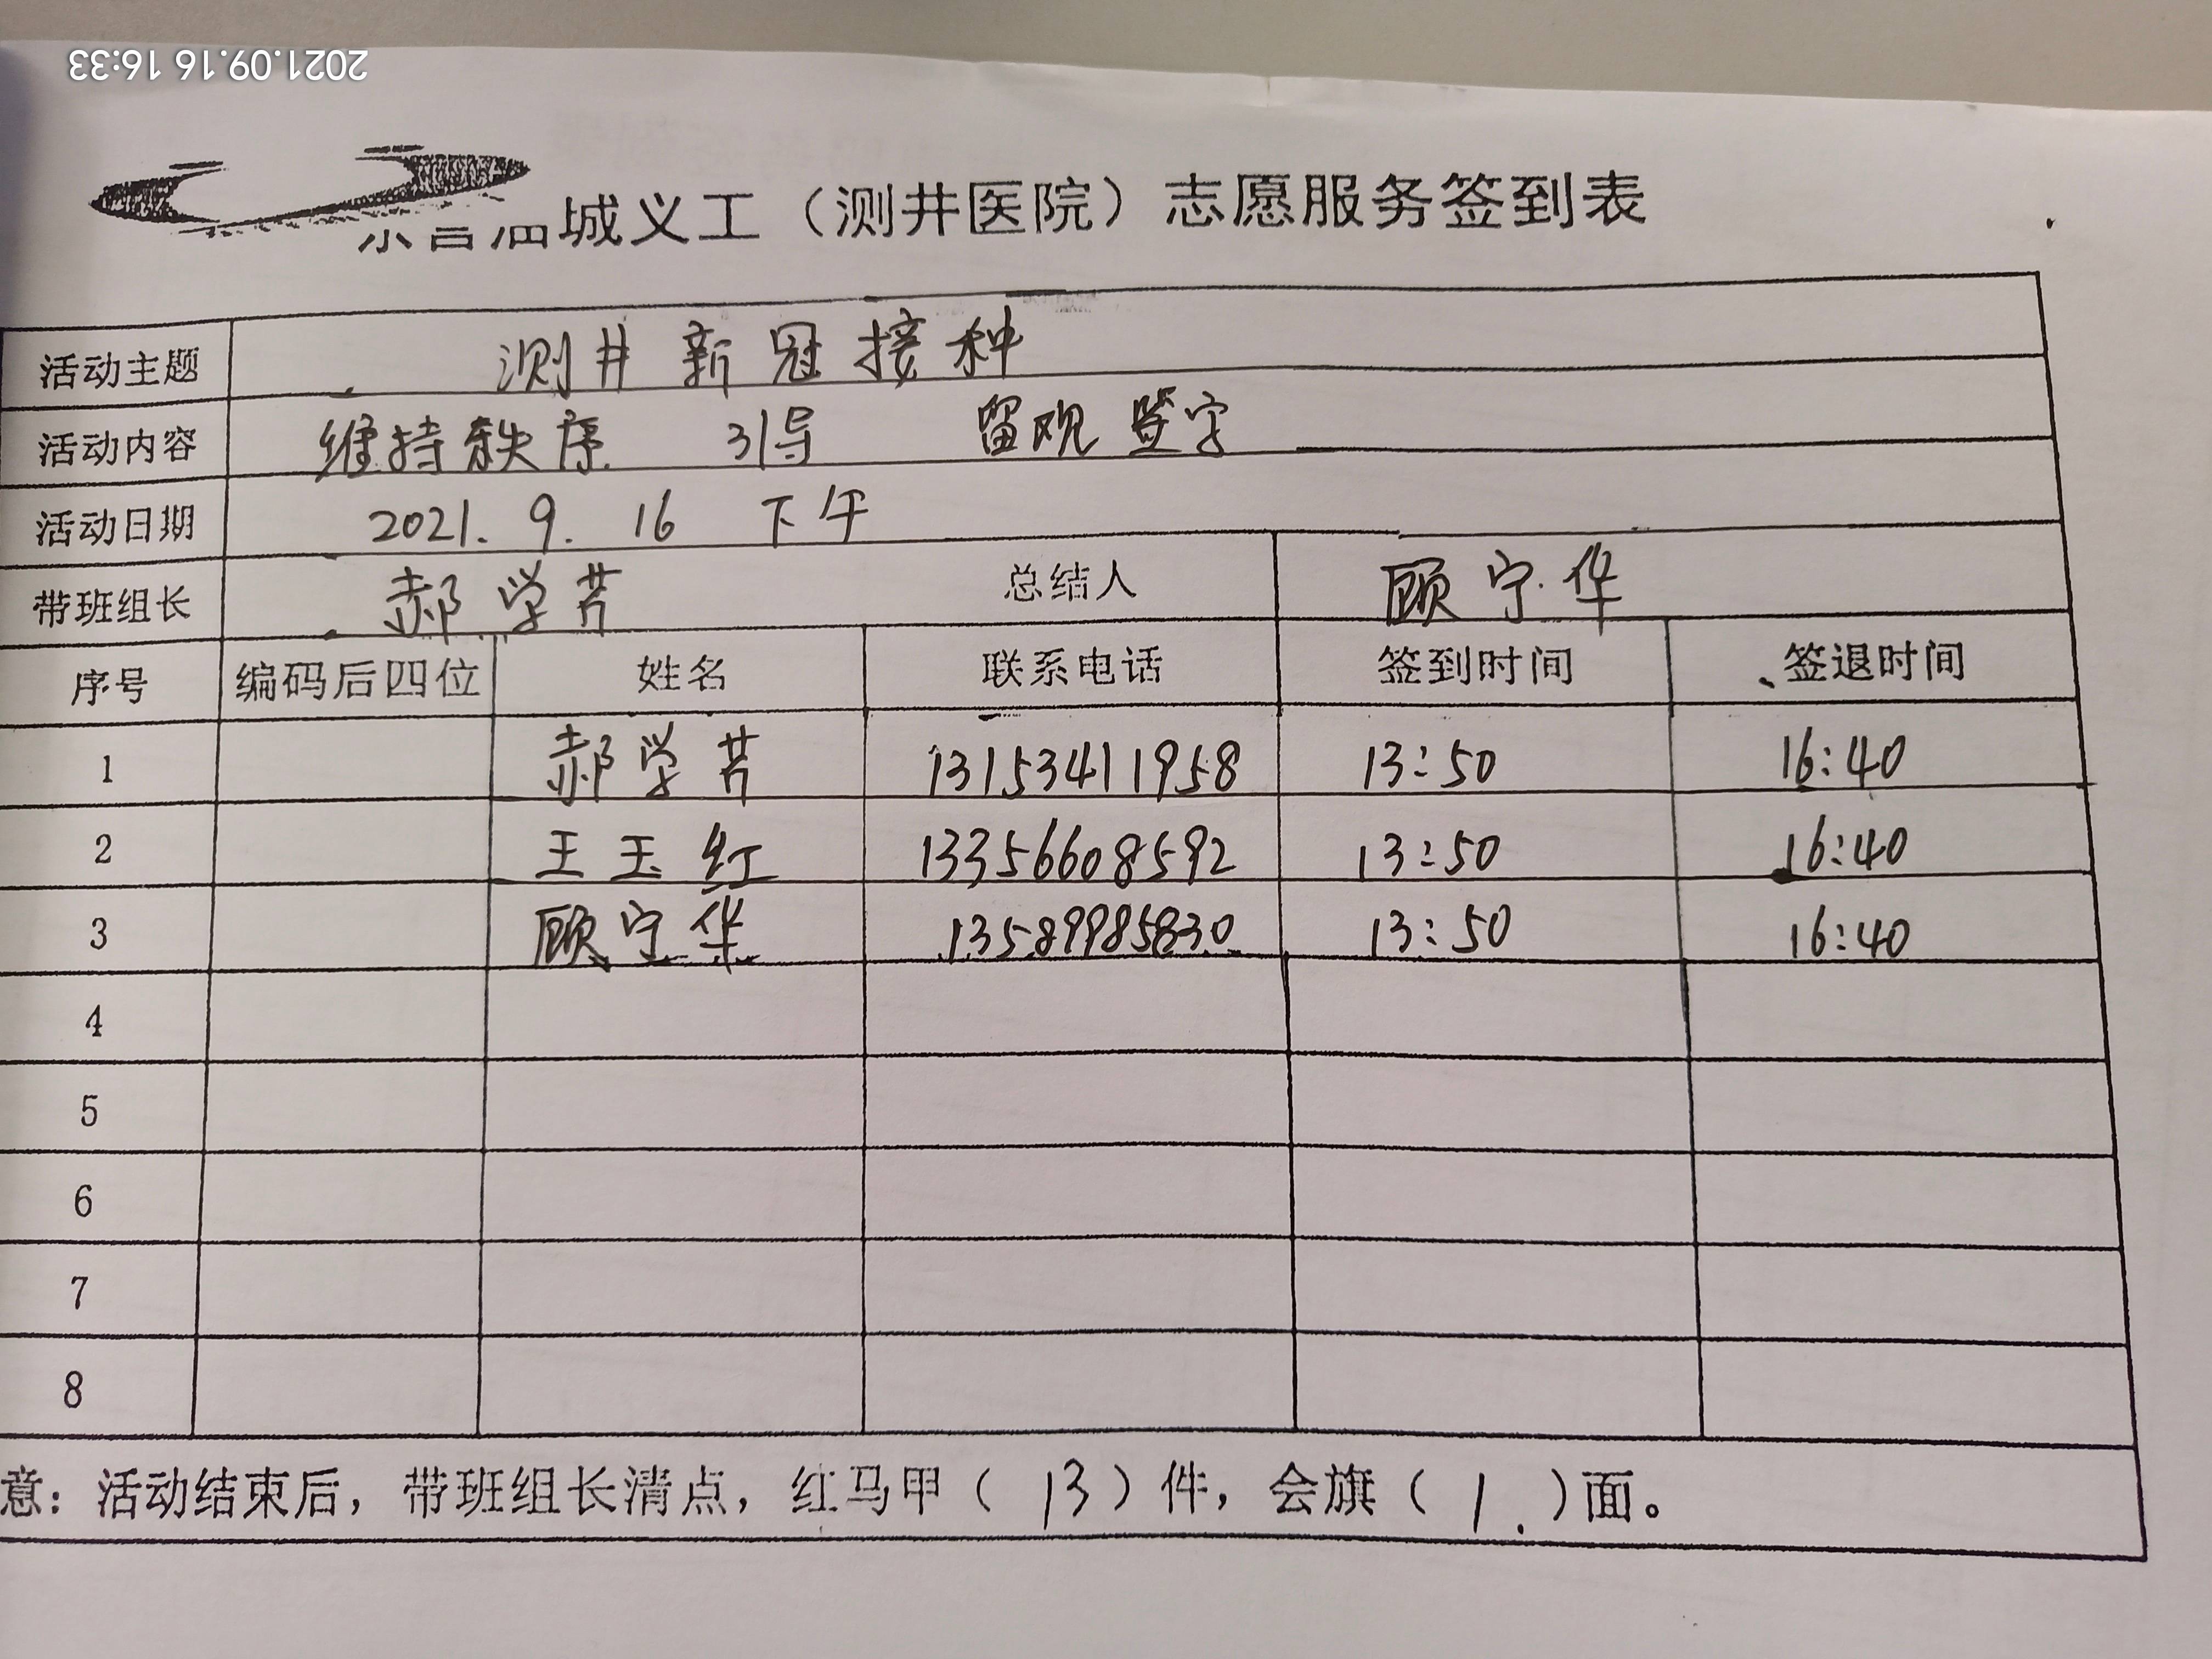 2021.09.16 16:33
城义工（测井医院）志愿服务签到表
活动主题 测井新冠接种
活动内容 维持秩序 引导 留观签字
活动日期 2021. 9. 16 下午
带班组长 郝学芳 总结人 顾宁华
序号 编码后四位 姓名 联系电话 签到时间 签退时间
1 郝学芳 13153411958 13:50 16:40
2 王玉红 13356608592 13:50 16:40
3 顾宁华 13589985830 13:50 16:40
4
5
6
7
8
意：活动结束后，带班组长清点，红马甲（ 13 ）件，会旗（ 1. ）面。